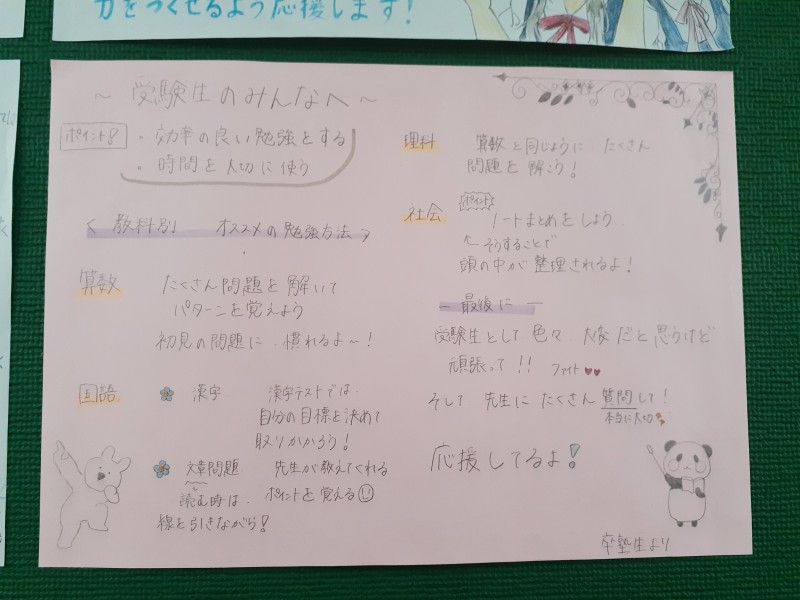 力をつくせるよう応援します!
~ 受験生のみんなへ ~
ポイント!
・効率の良い勉強をする
・時間を大切に使う
< 教科別 オススメの勉強方法 >
算数
たくさん問題を解いて
パターンを覚えよう
初見の問題に 慣れるよ~!
国語
漢字
漢字テストでは
自分の目標を決めて
取りかかろう!
文章問題
読む時は
線を引きながら!
先生が教えてくれる
ポイントを覚える
理科
算数と同じように たくさん
問題を解こう!
社会
ポイント
ノートまとめをしよう
そうすることで
頭の中が整理されるよ!
― 最後に ―
受験生として色々 大変だと思うけど
頑張って!!
ファイト
そして 先生に たくさん 質問して!
本当に大切
応援してるよ!
卒塾生より